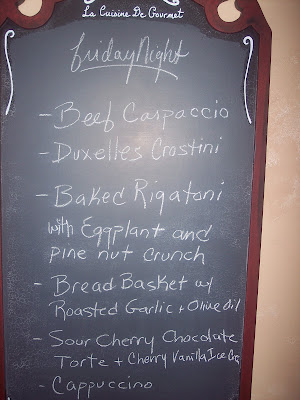 La Cuisine De Gourmet
Friday Night
- Beef Carpaccio
- Duxelles Crostini
- Baked Rigatoni
with Eggplant and
pine nut crunch
- Bread Basket w/
Roasted Garlic + Olive oil
- Sour Cherry Chocolate
Torte + Cherry Vanilla Ice Crm
- Cappuccino